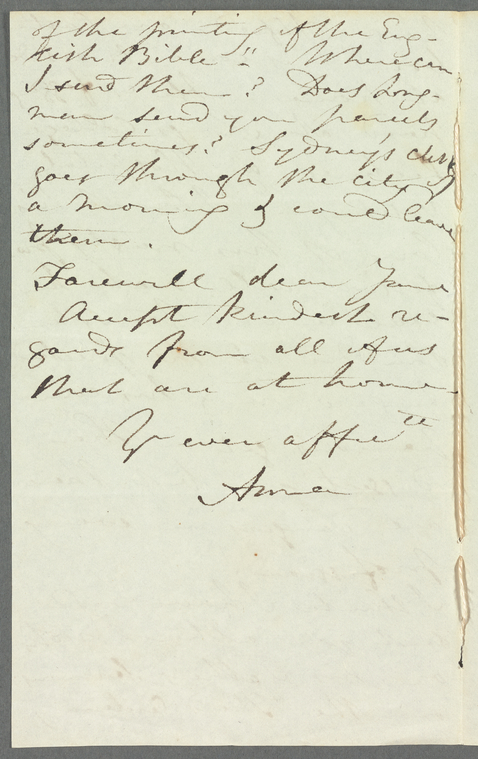 of the printing of the Eng-
lish Bible". Where can
I send them? Does Long-
man send you parcels
sometimes? Sydney's clerk
goes through the city of
a morning & could leave
them.
Farewell dear Jane
Accept kindest re-
gards from all of us
that are at home
Yr ever affecte
Anna